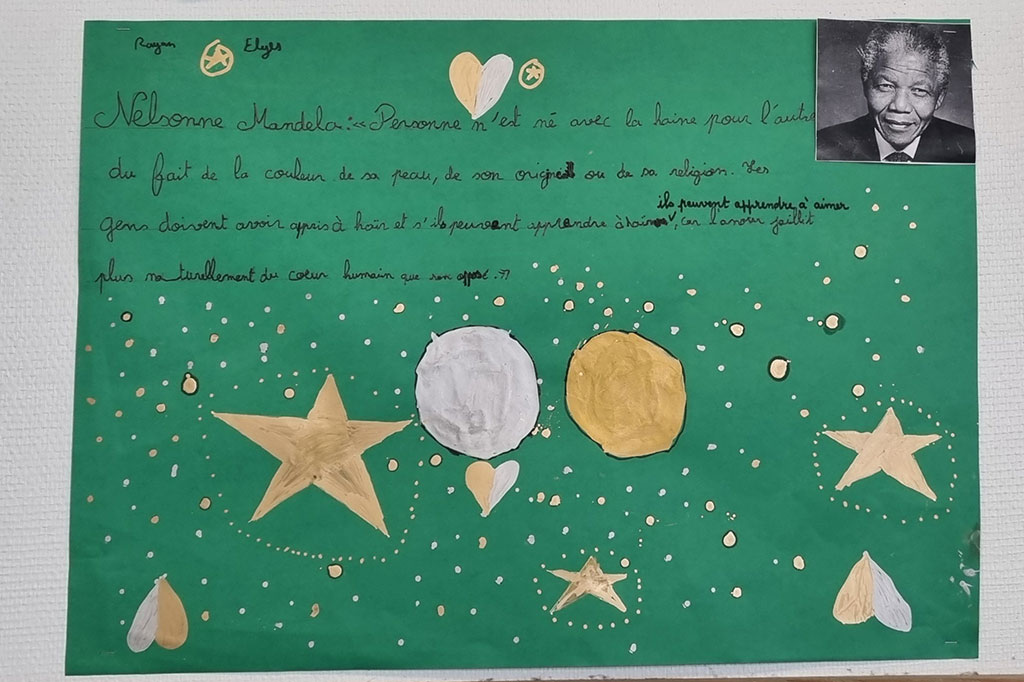 Rayan Elyes
Nelsonne Mandela : « Personne n'est né avec la haine pour l'autre
du fait de la couleur de sa peau, de son origine ou de sa religion. Les
ils peuvent apprendre à aimer
gens doivent avoir appris à haïr et s'ils peuvent apprendre à haïr, car l'amour jaillit
plus naturellement du coeur humain que son opposé. »